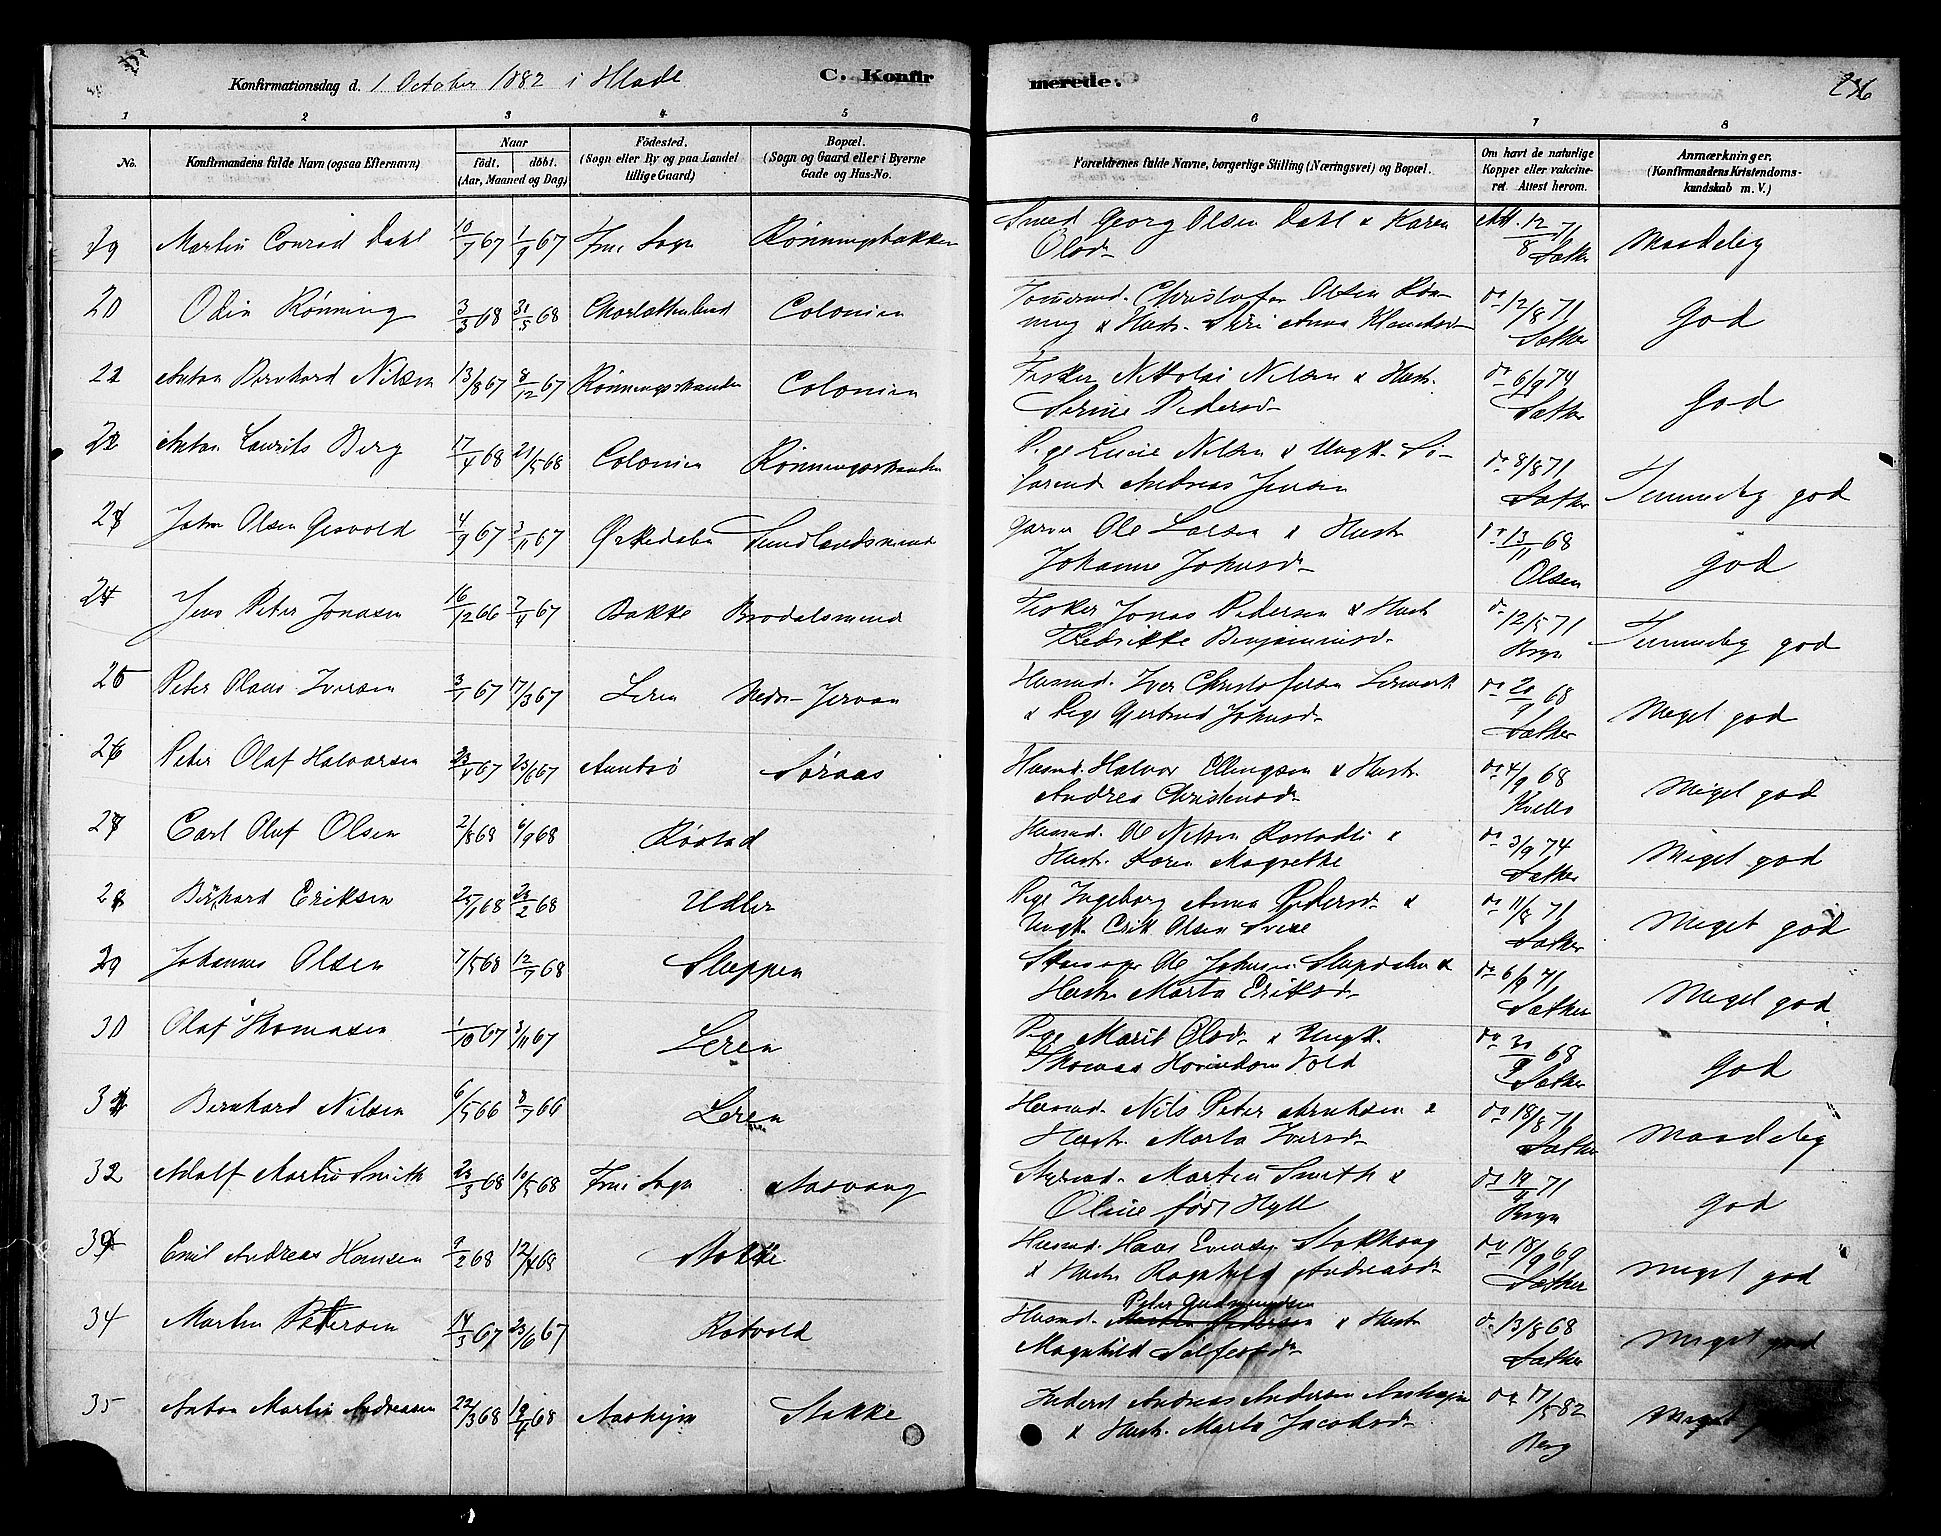 Konfirmationsdag d. 1 October 1882 i Hlade
C. Konfir merede. 236
1 2 3 4 5 6 7 8
No.
Konfirmandens fulde Navn (ogsaa Efternavn)
Naar
födt. döbt.
(Aar, Maaned og Dag)
Födested.
(Sogn eller By og paa Landet
tillige Gaard)
Bopæl.
(Sogn og Gaard eller i Byerne
Gade og Hus-No.
Forældrenes fulde Navne, borgerlige Stilling (Næringsvei) og Bopæl.
Om havt de naturlige
Kopper eller vakcine-
ret. Attest herom.
Anmærkninger.
(Konfirmandens Kristendoms-
kundskab m. V.)
19 Martin Conrad Dahl 10/7 67 1/9 67 Frue Sogn Rönningsbakken Smed Georg Olsen Dahl & Karen
Olsdr Att. 12/8 71 Sæther Maadelig
20 Odin Rönning 3/3 68 31/5 68 Charlottenlund Colonien Tømmermd. Christofer Olsen Rön-
ning & Hustr. Siri Anna do 12/8 71 Sæther God
21 Anton Bernhard Nilsen 13/8 67 8/12 67 Rönningstranden Colonien Fisker Nikolai Nilsen & Hustr.
Serine Pedersd. do 6/9 74 Sæther God
22 Anton Laurits Berg 17/4 68 21/5 68 Colonien Rönningsstranden Pige Lucie Nilsen & Ungk. Sö-
farend. Andreas Jensen do 8/8 71 Sæther Temmelig god
23 John Olsen Gjesvold 4/9 67 3/11 67 Ørkedalen Sundlandsmind Garver Ole Larsen & Hustr
Johanne Johnsd. do 13/11 68 Olsen God
24 Jens Peter Jonasen 16/12 66 7/4 67 Bakke Brodalsmind Fisker Jonas Pedersen & Hustr
Fredrikke Benjaminsd. do 12/5 71 Bryn Temmelig god
25 Peter Olaus Iversen 3/1 67 17/3 67 Leren Nedre Jervan Husmd. Iver Christofersen Lermark
& Pige Gjertrud Johnsd. do 20/9 68 Sæther Meget god
26 Peter Olaf Halvorsen 23/4 67 23/6 67 Söraas Husmd. Halvor Ellingsen & Hustr.
Andrea Christensd. do 4/9 68 Kvello Meget god
27 Carl Oluf Olsen 2/8 68 6/9 68 Röstad Husmd. Ole Nilsen Rostadli &
Hustr. Karen Magrethe do 3/9 74 Sæther Meget god
28 Bernhard Eriksen 25/1 68 23/2 68 Udler Pige Ingeborg Anna Pedersd. &
Ungk. Erik Olsen do 11/8 71 Sæther Meget god
29 Johannes Olsen 7/5 68 12/7 68 Sluppen Ole Johnsen Slupdalen &
Hustr. Marta Eriksd. do 6/9 71 Sæther Meget god
30 Olaf Thomasen 1/10 67 3/11 67 Leren Pige Marit Olsd. & Ungk.
Thomas Vold do 30/9 68 Sæther God
31 Bernhard Nilsen 6/5 66 8/7 66 Leren Husmd. Nils Peter Arntsen &
Hustr. Marta Iversd. do 18/8 71 Sæther Maadelig
32 Adolf Martin Smith 23/3 68 10/5 68 Frue Sogn Aasvang Styrmd. Morten Smith &
Oline födt Hyll do 19/9 71 Bryn God
33 Emil Andreas Hansen 9/2 68 12/4 68 Stokke Husmd. Hans Evensen Stokhaug
& Hustr. Ragnhild Andreasd. do 18/9 69 Sæther Meget god
34 Martin Petersen 14/3 67 23/6 67 Rotvold Husmd. Peter Gudmundsen & Hustr
Magnhild do 13/8 68 Sæther Meget god
35 Anton Martin Andreasen 22/3 68 19/4 68 Aasheim Stokke Inderst Andreas Andersen Aasheim
& Hustr. Marta Jacobsd. do 17/5 82 Berg Meget